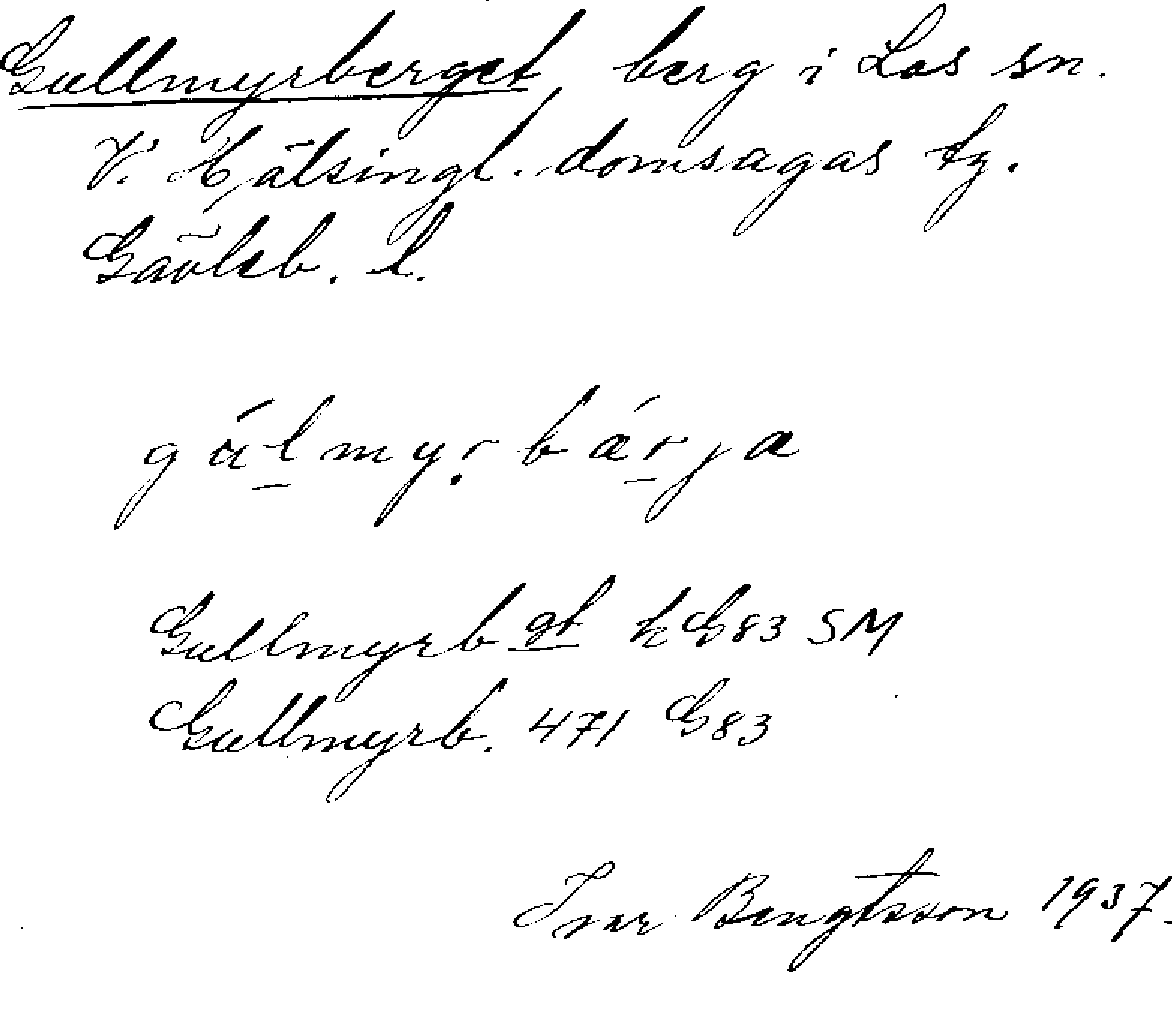 Gullmyrberget berg i Los sn.
V. Hälsingl. domsagas tg.
Gävleb. l.
gúlmyrbǽrja
Gullmyrb gt k G83 SM
Gullmyrb. 471 G83
Ivar Bengtsson 1937.